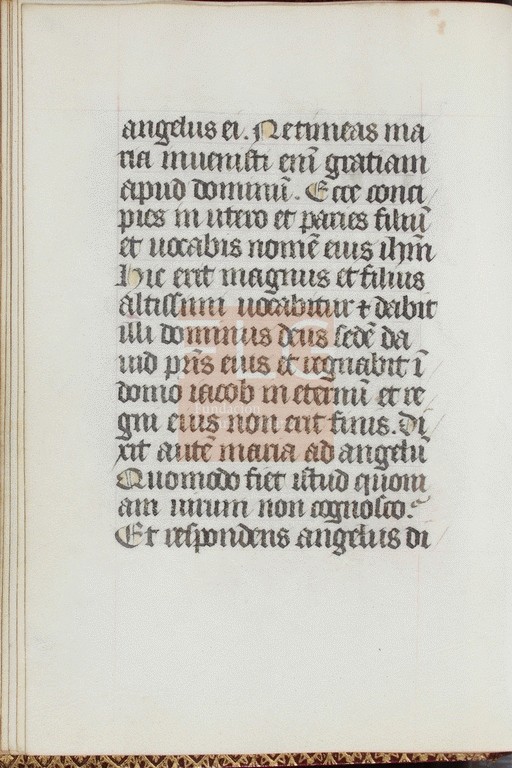 angelus ei. Ne timeas ma
ria inuenisti enī gratiam
apud dominū. Ecce conci
pies in utero et paries filiū
et uocabis nomē eius ihm̄
Hic erit magnus et filius
altissimi uocabitur ⁊ dabit
illi dominus deus sedē da
uid pr̄is eius et regnabit ī
domo iacob in eternū et re
gni eius non erit finis. Di
xit autē maria ad angelū
Quomodo fiet istud quoni
am uirum non cognosco.
Et respondens angelus di
FLG
Fundación